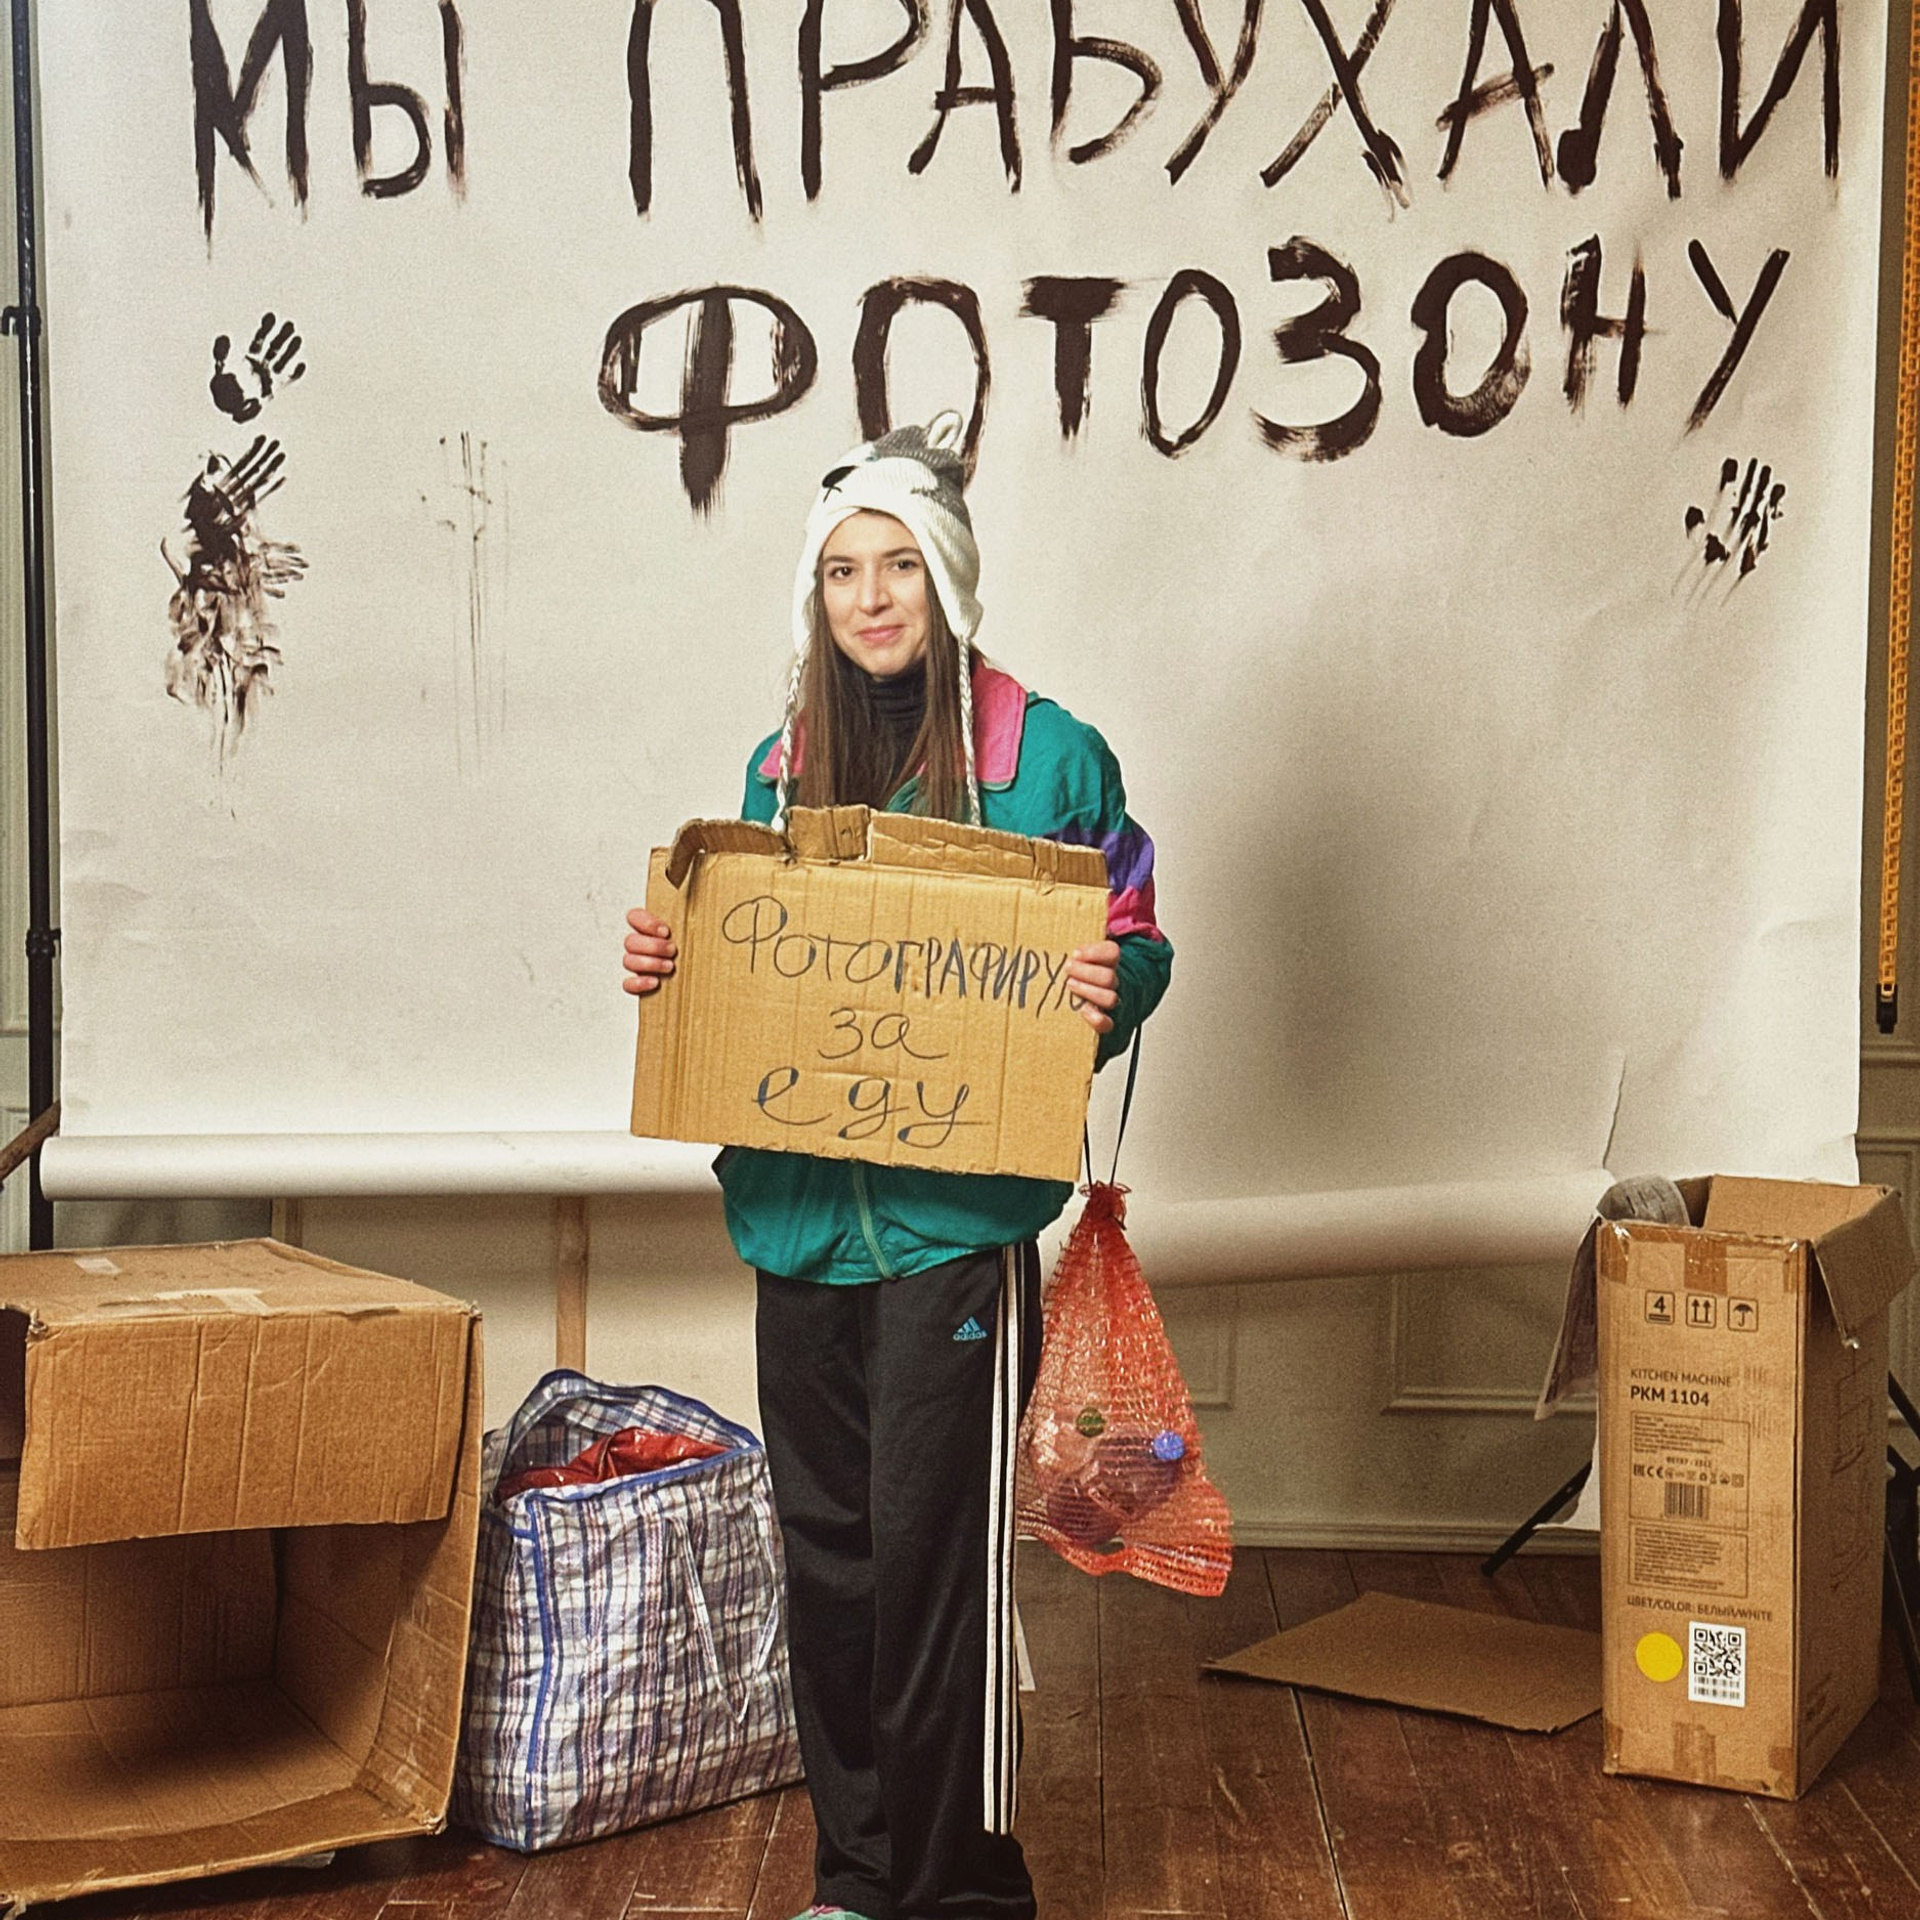 МЫ ПРАБУХАЛИ
ФОТОЗОНУ
Фотографирую
за
еду
adidas
4
KITCHEN MACHINE
PKM 1104
ЦВЕТ/COLOR: БЕЛЫЙ/WHITE